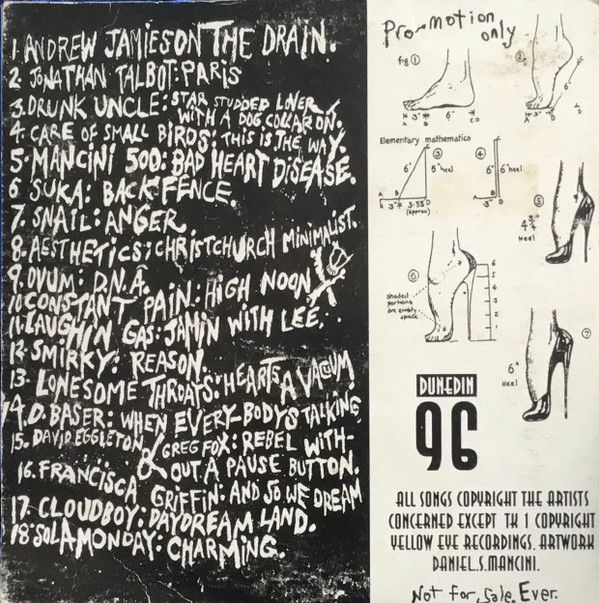 1. ANDREW JAMIESON THE DRAIN.
2. JONATHAN TALBOT: PARIS
3. DRUNK UNCLE: STAR STUDDED LOVER
WITH A DOG COLLAR ON.
4. CARE OF SMALL BIRDS: THIS IS THE WAY.
5. MANCINI 500: BAD HEART DISEASE.
6 SUKA: BACK FENCE.
7. SNAIL: ANGER.
8. AESTHETICS; CHRISTCHURCH MINIMALIST.
9. OVUM: D.N.A.
10. CONSTANT PAIN: HIGH NOON
11. LAUGHIN GAS: JAMIN WITH LEE.
12. SMIRKY: REASON.
13. LONESOME THROATS: HEARTS A VACUUM
14. D. BASER: WHEN EVERY-BODY'S TALKING
15. DAVID EGGLETON & GREG FOX: REBEL WITH-
OUT A PAUSE BUTTON.
16. FRANCISCA GRIFFIN: AND SO WE DREAM
17 CLOUDBOY: DAYDREAM LAND.
18 SOLA MONDAY: CHARMING.
Pro-motion
only
fig 1
2
A 3" B 6" C D
6"
Elementary mathematics
3
4
6"
6" heel
6"
6" heel
A 3" B 3·35" D
(approx)
3"
5
4 3/4"
Heel
6
shaded
portions
are empty
space
6
5
4
3
2
1
7
6"
Heel
DUNEDIN
96
ALL SONGS COPYRIGHT THE ARTISTS
CONCERNED EXCEPT TK 1 COPYRIGHT
YELLOW EYE RECORDINGS. ARTWORK
DANIEL.S.MANCINI.
Not for Sale Ever.